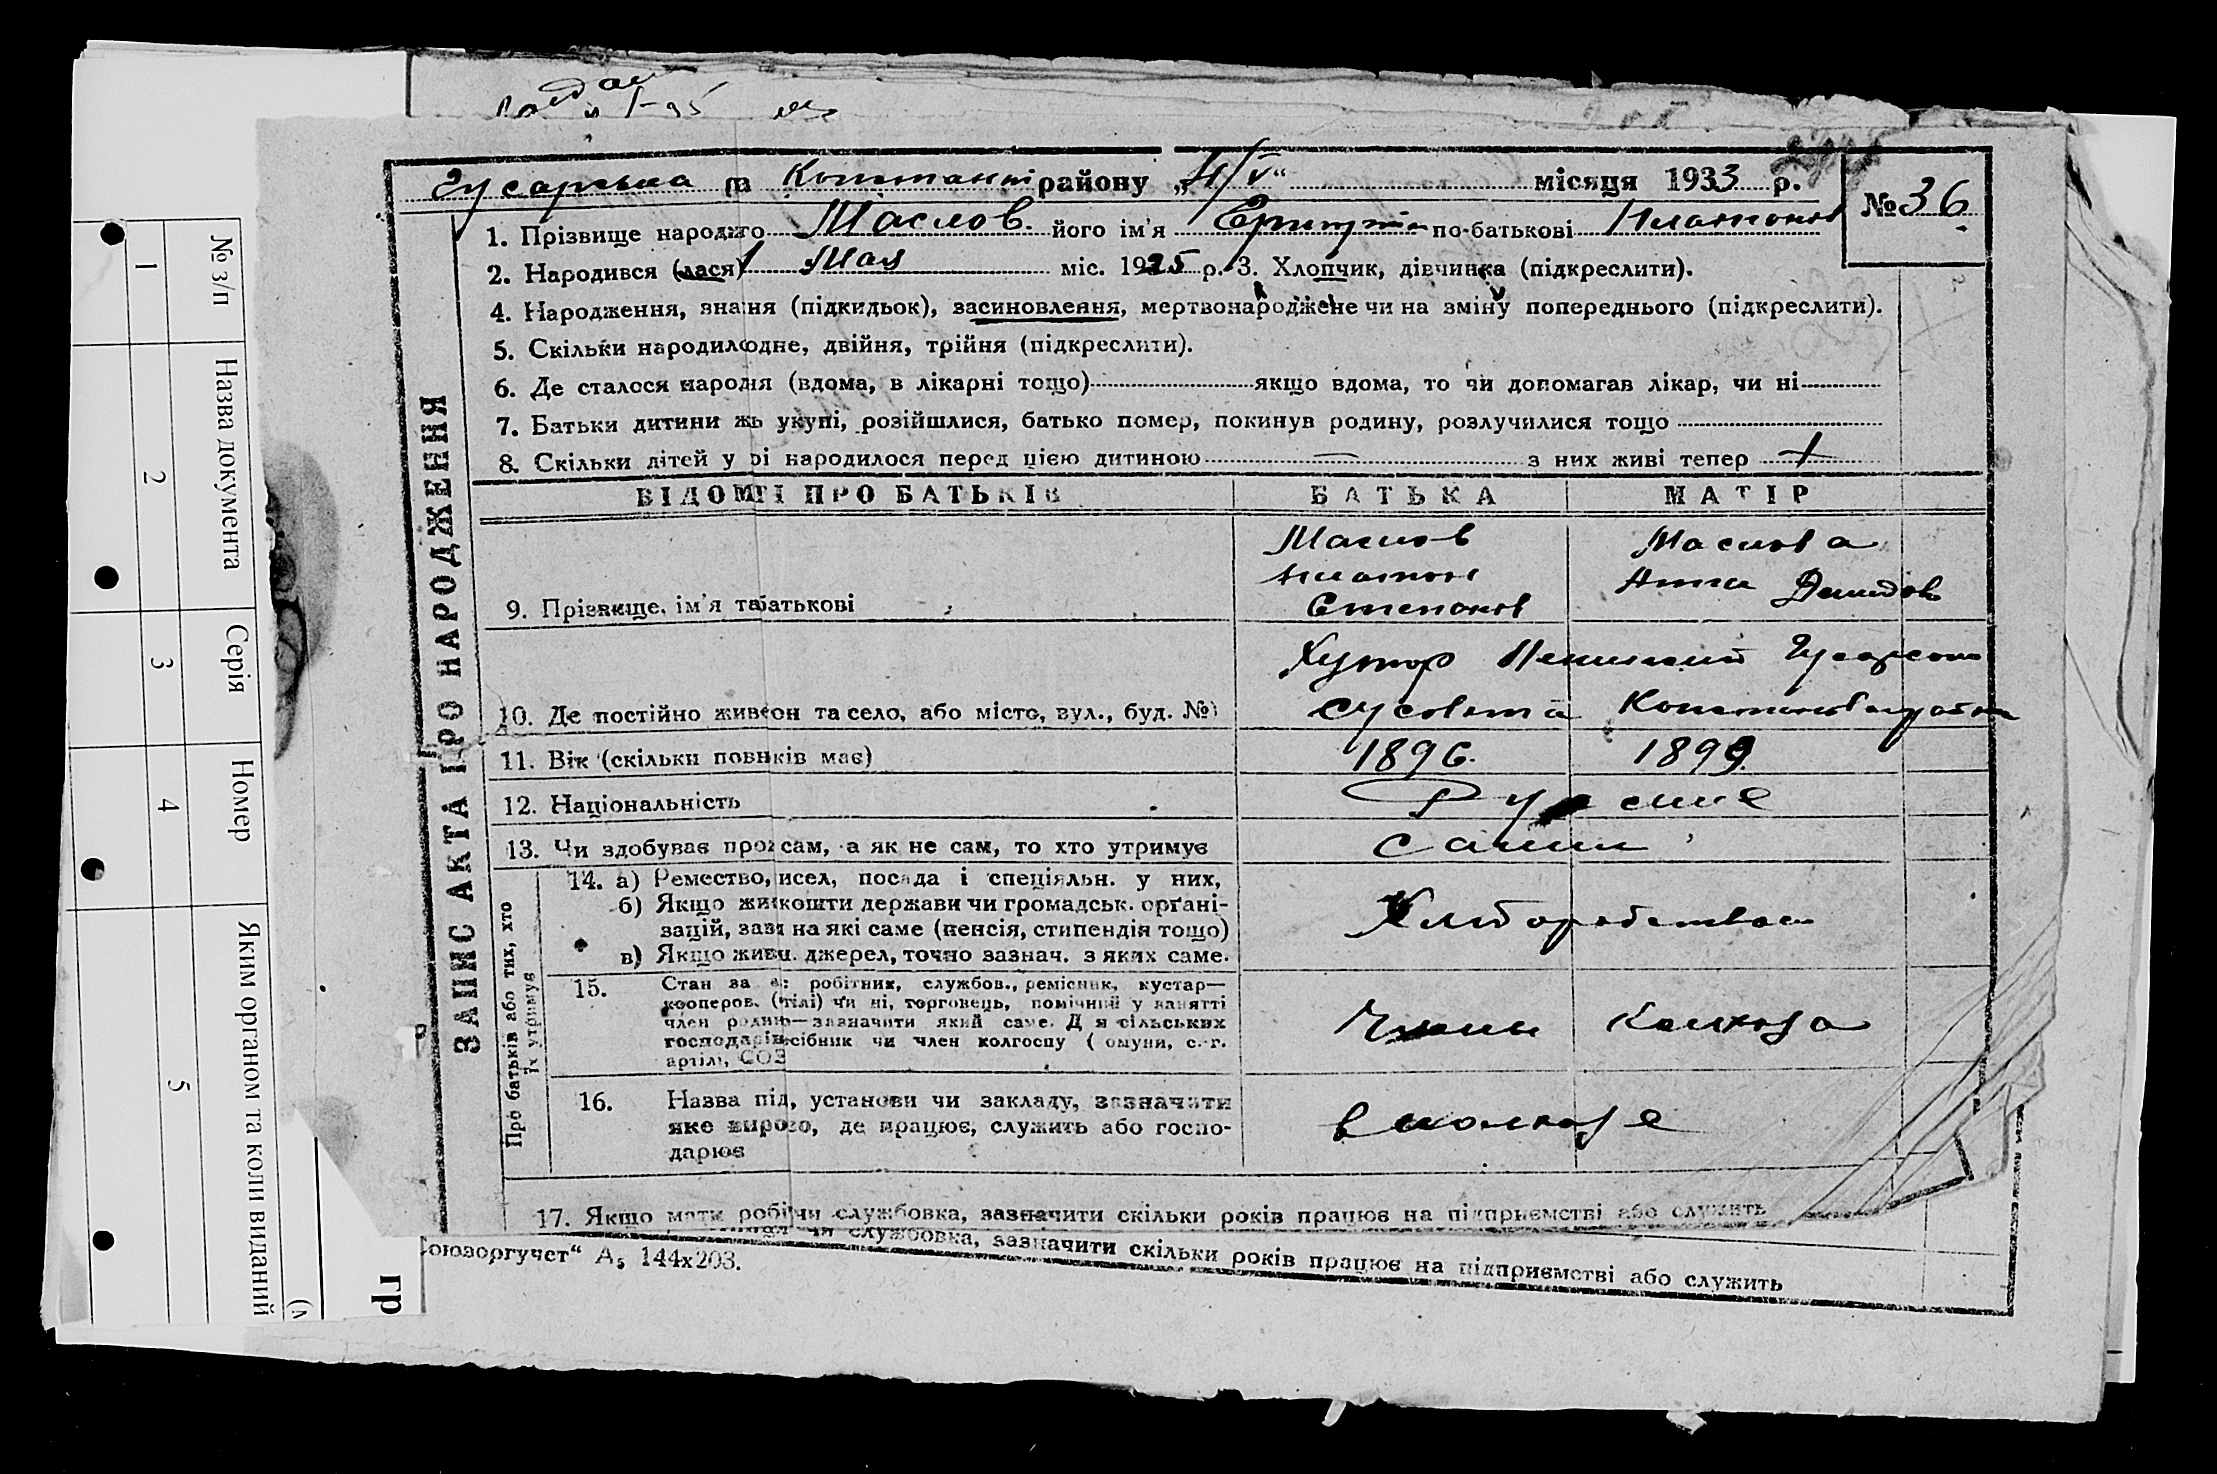 Гусарська ра Констант району „4/V“ місяця 1933 р.
№ 36
1. Прізвище народжго Маслов. його ім'я по-батькові Платонов
2. Народився (лася) 1 Мая міс. 1925 р. 3. Хлопчик, дівчинка (підкреслити).
4. Народження, знання (підкидьок), засиновлення, мертвонароджене чи на зміну попереднього (підкреслити).
5. Скільки народилодне, двійня, трійня (підкреслити).
6. Де сталося народія (вдома, в лікарні тощо) якщо вдома, то чи допомагав лікар, чи ні
7. Батьки дитини жь укупі, розійшлися, батько помер, покинув родину, розлучилися тощо
8. Скільки дітей у рі народилося перед цією дитиною — з них живі тепер +
ЗАПИС АКТА ПРО НАРОДЖЕННЯ
ВІДОМІ ПРО БАТЬКІВ БАТЬКА МАТІР
Маслов Маслова
Платон Анна Демидов
9. Прізвище, ім'я табатькові Степанов
Хутор Гусарсько
10. Де постійно живеон та село, або місто, вул., буд. №) сусовета
11. Вік (скільки повнків має) 1896. 1899
12. Національність Руские
13. Чи здобуває прож сам, а як не сам, то хто утримує Сами
Про батьків або тих, хто їх утримує
14. а) Ремество, исел, посада і спеціяльн. у них,
б) Якщо жикошти держави чи громадськ. орґані-
зацій, зазн на які саме (пенсія, стипендія тощо)
в) Якщо живн. джерел, точно зазнач. з яких саме.
Хлеборобством
15. Стан за робітник, службов., ремісник, кустар—
кооперов. (тілі) чи ні, торговець, помічний у занятті
член родин—зазначити який саме. Для сільських
господарів осібник чи член колгоспу ( омуни, с.-г.
артілі, СОЗ
Члены Колхоза
16. Назва під, установи чи закладу, зазначити
яке вирозо, де працює, служить або госпо-
дарює
в колхозе
17. Якщо мати робічи службовка, зазначити скільки років працює на підприємстві або служить
чи службовка, зазначити скільки років працює на підприємстві або служить
оюзоргучет“ А₅ 144x203.
№ з/п Назва документа Серія Номер Яким органом та коли виданий
1 2 3 4 5
гр